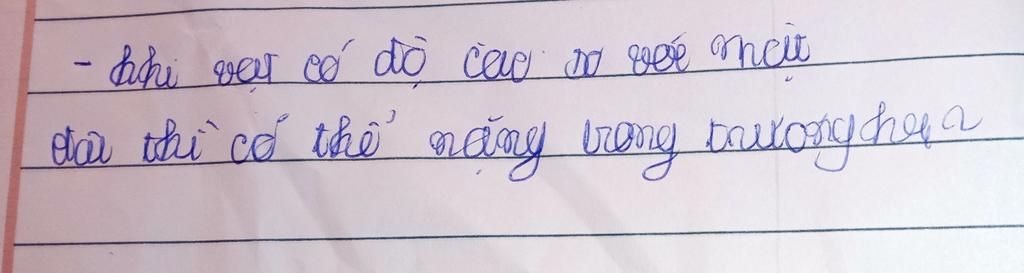 - khi vật có độ cao so với mặt
đất thì có thế năng trong trường hợp